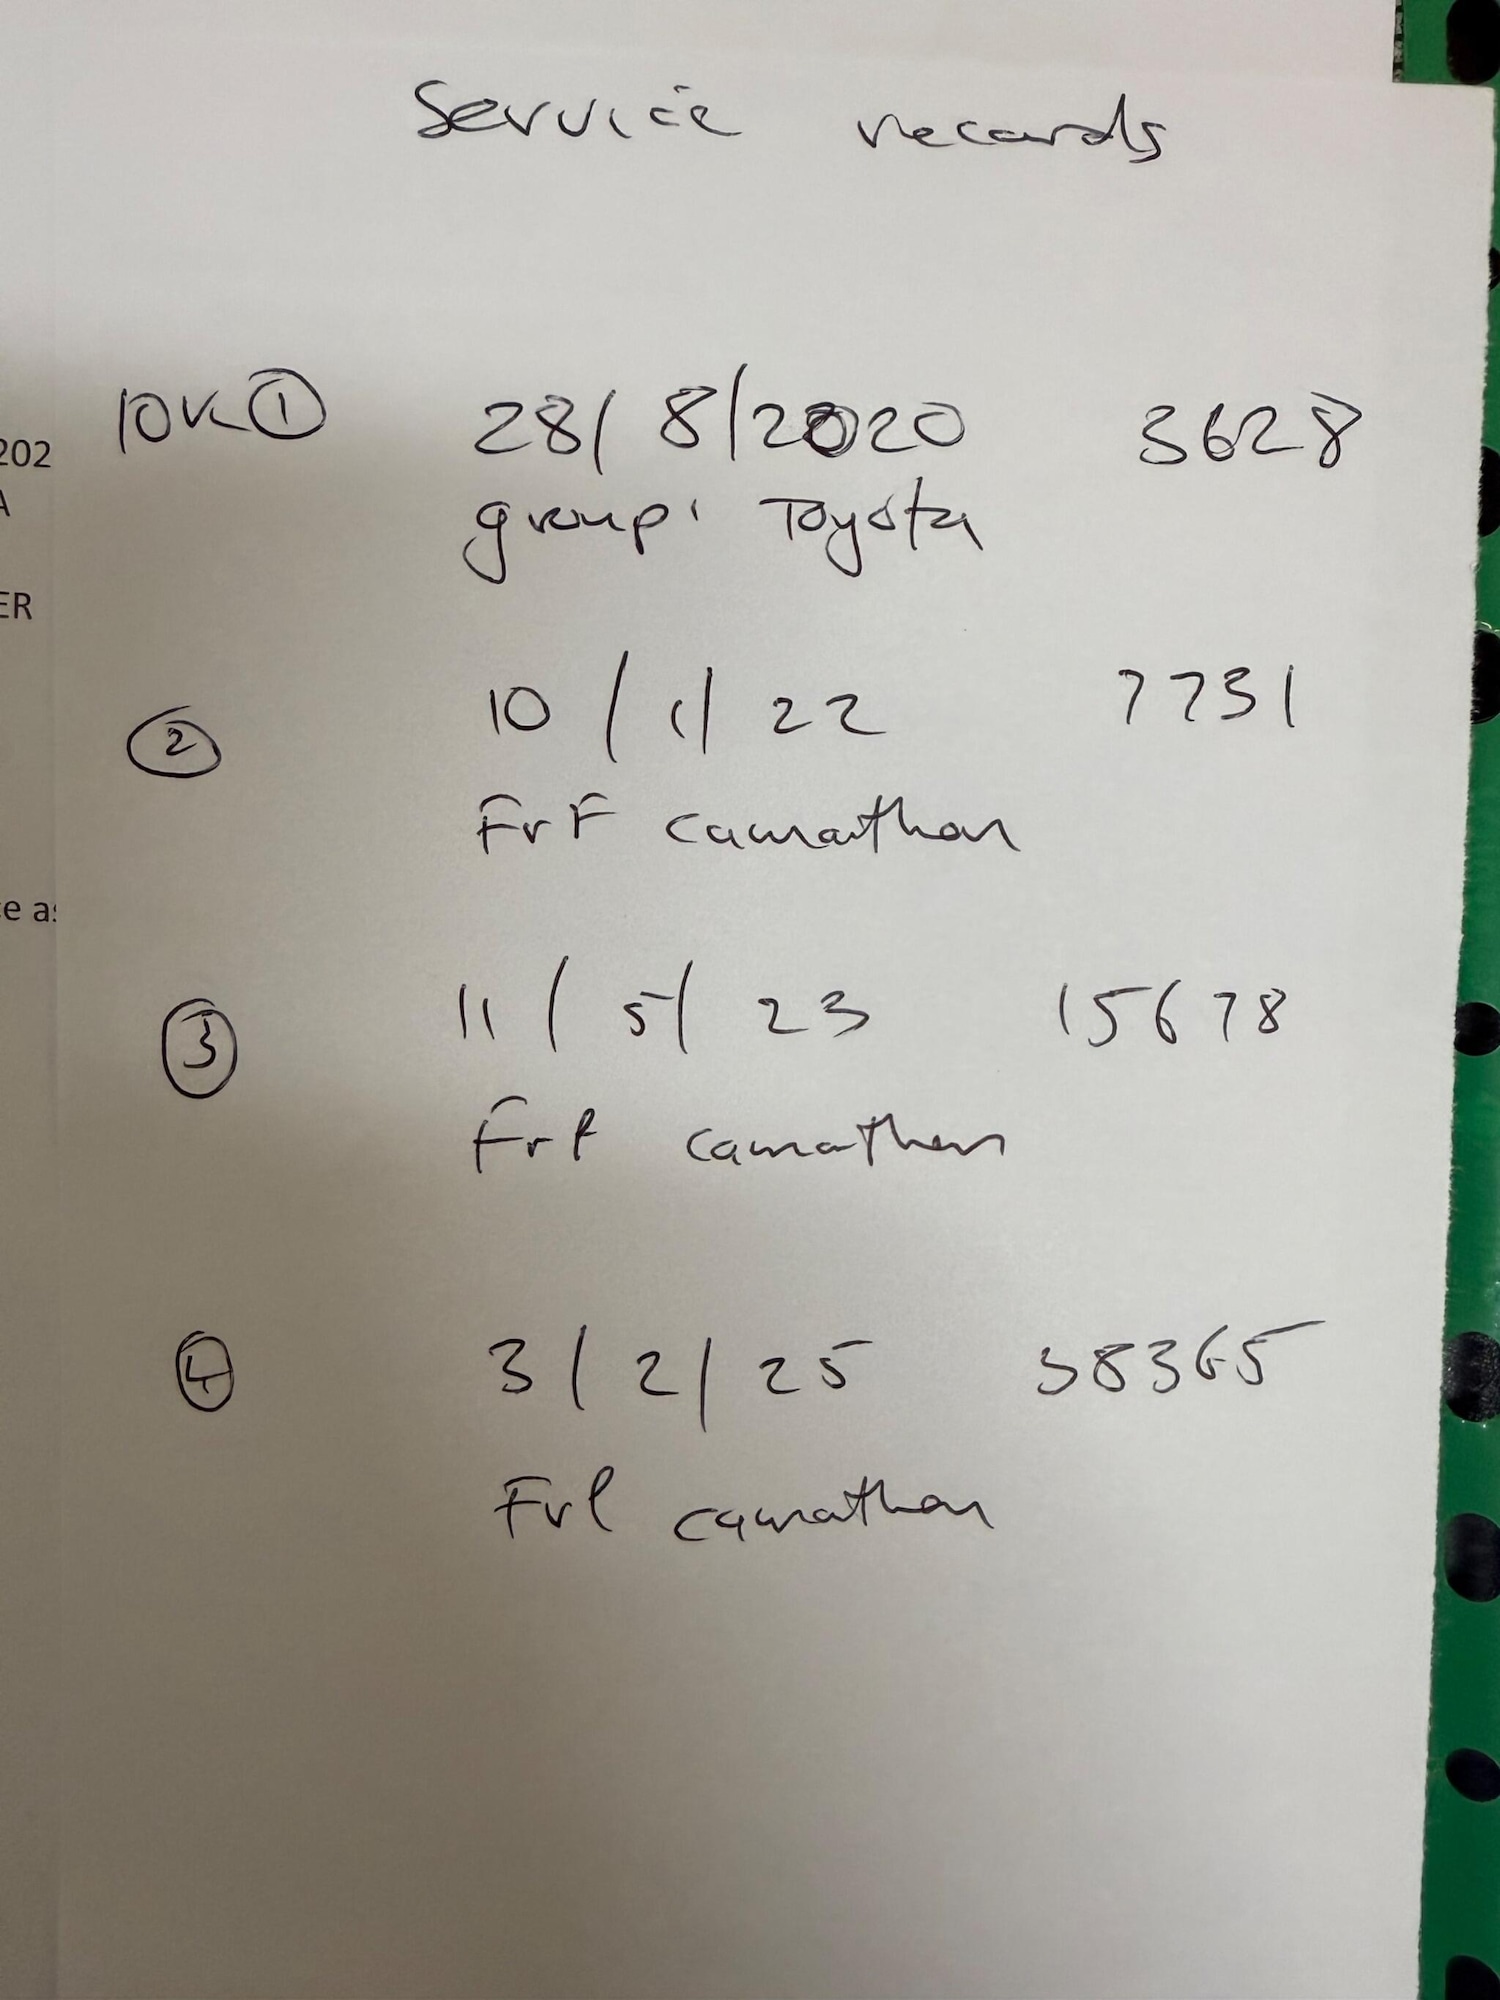 Service records
202
A
ER
e as
10K ① 28/8/2020 3628
group: Toyota
② 10/1/22 7731
FrF camarthan
③ 11/5/23 15678
Frf camarthen
④ 3/2/25 38365
Frf camarthan